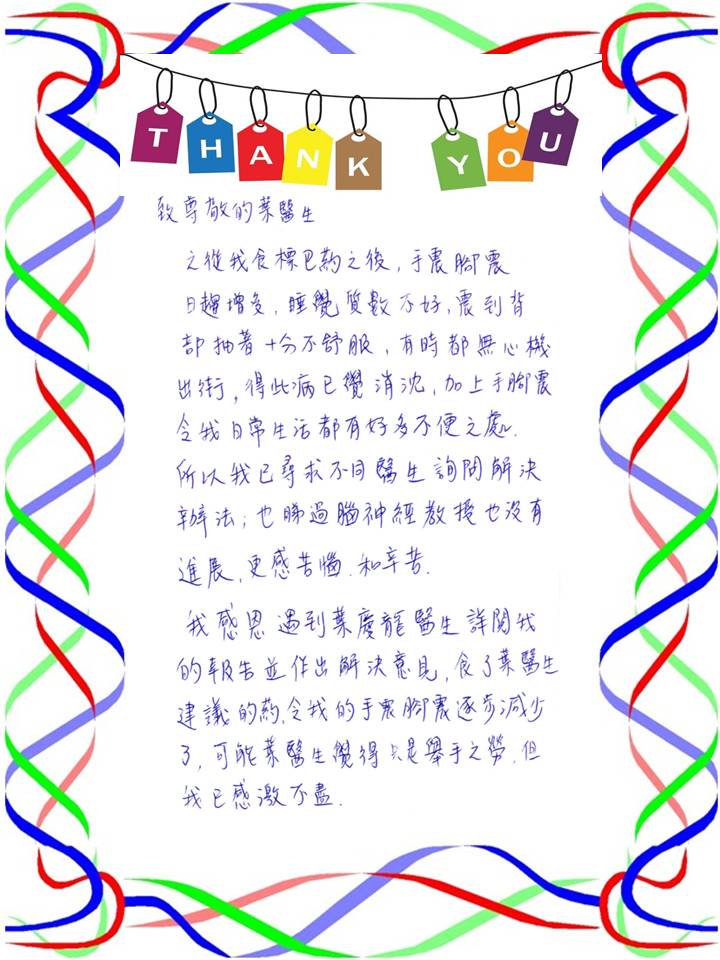 THANK YOU
致尊敬的葉醫生
之從我食標巴葯之後，手震腳震
日趨增多，睡覺質數不好，震到背
部抽著十分不舒服，有時都無心機
出街，得此病已覺消沈，加上手腳震
令我日常生活都有好多不便之處．
所以我已尋求不同醫生詢問解決
辦法；也睇過腦神經教授也沒有
進展，更感苦惱．和辛苦．
我感恩遇到葉慶龍醫生詳閱我
的報告並作出解決意見，食了葉醫生
建議的葯，令我的手震腳震逐步減少
了，可能葉醫生覺得只是舉手之勞，但
我已感激不盡．